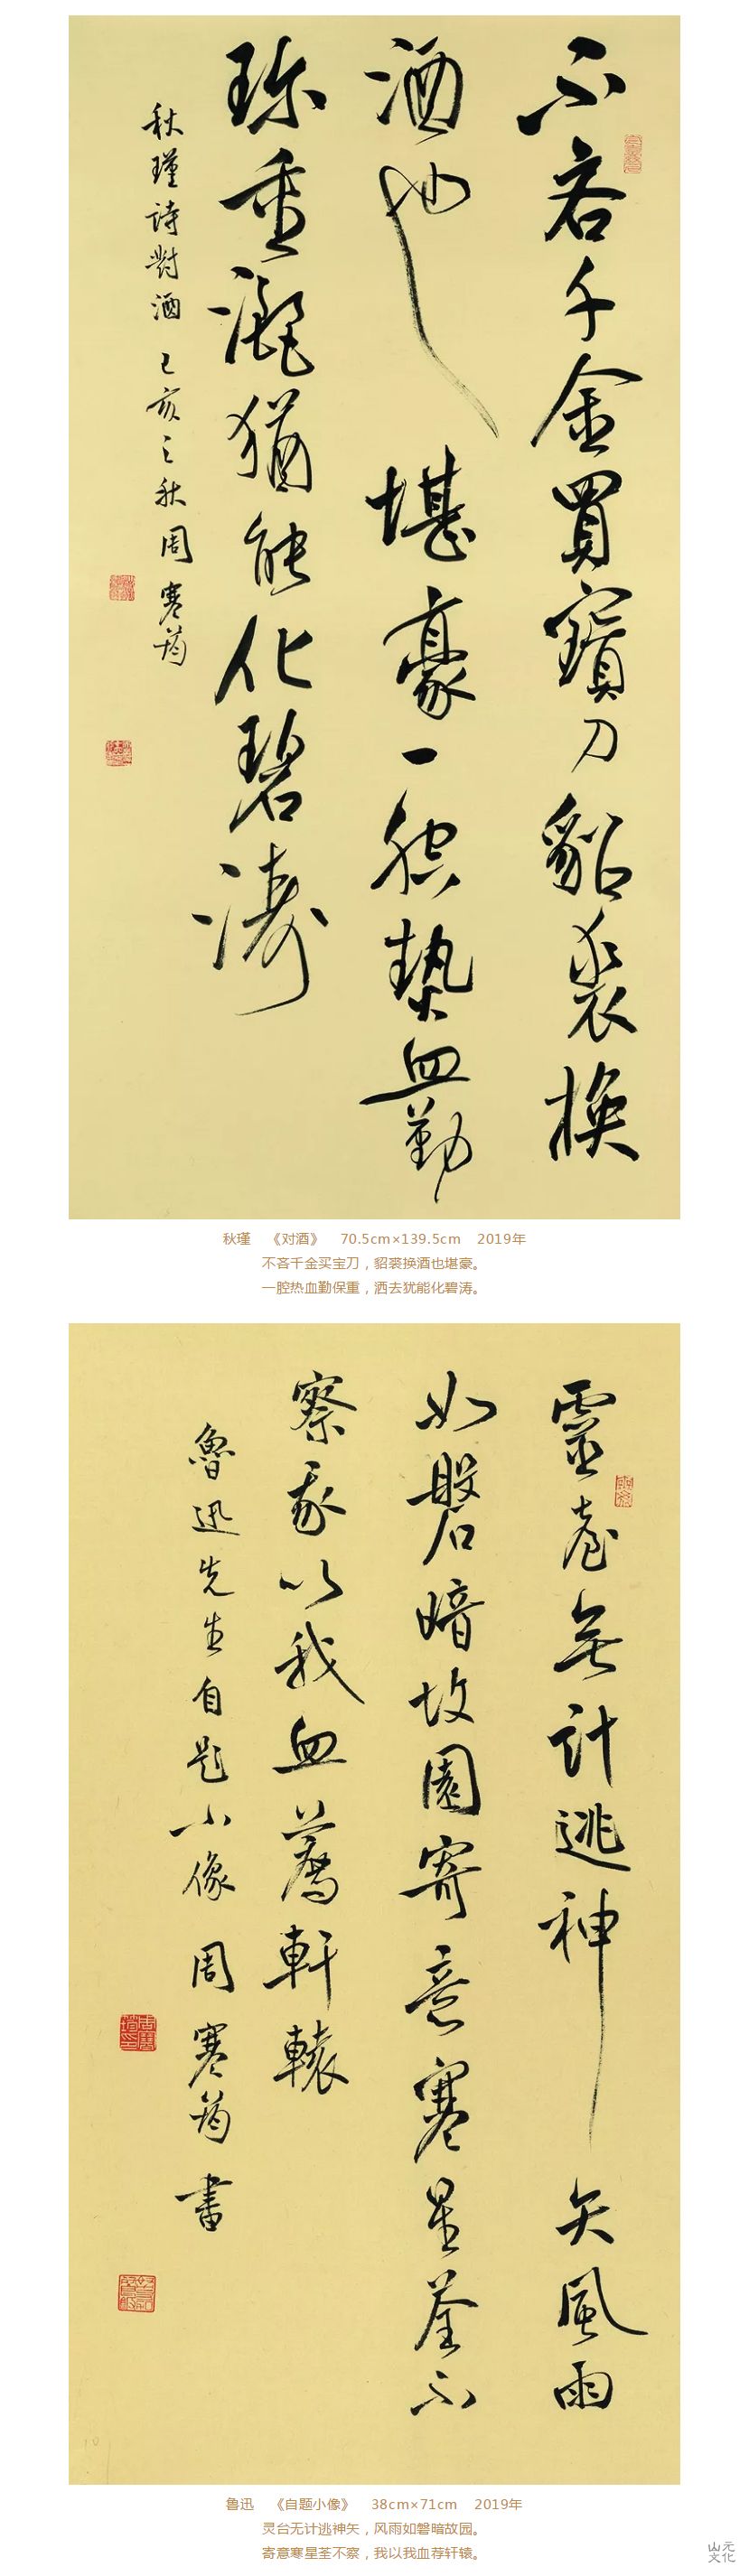 不吝千金買寶刀貂裘換
酒也堪豪一腔熱血勤
珎重灑猶能化碧濤
秋瑾詩對酒 己亥之秋 周寒筠
秋瑾 《对酒》 70.5cm×139.5cm 2019年
不吝千金买宝刀，貂裘换酒也堪豪。
一腔热血勤保重，洒去犹能化碧涛。
靈臺無計逃神矢風雨
如磐暗故園寄意寒星荃不
察我以我血薦軒轅
魯迅先生自題小像 周寒筠書
鲁迅 《自题小像》 38cm×71cm 2019年
灵台无计逃神矢，风雨如磐暗故园。
寄意寒星荃不察，我以我血荐轩辕。
山元
文化